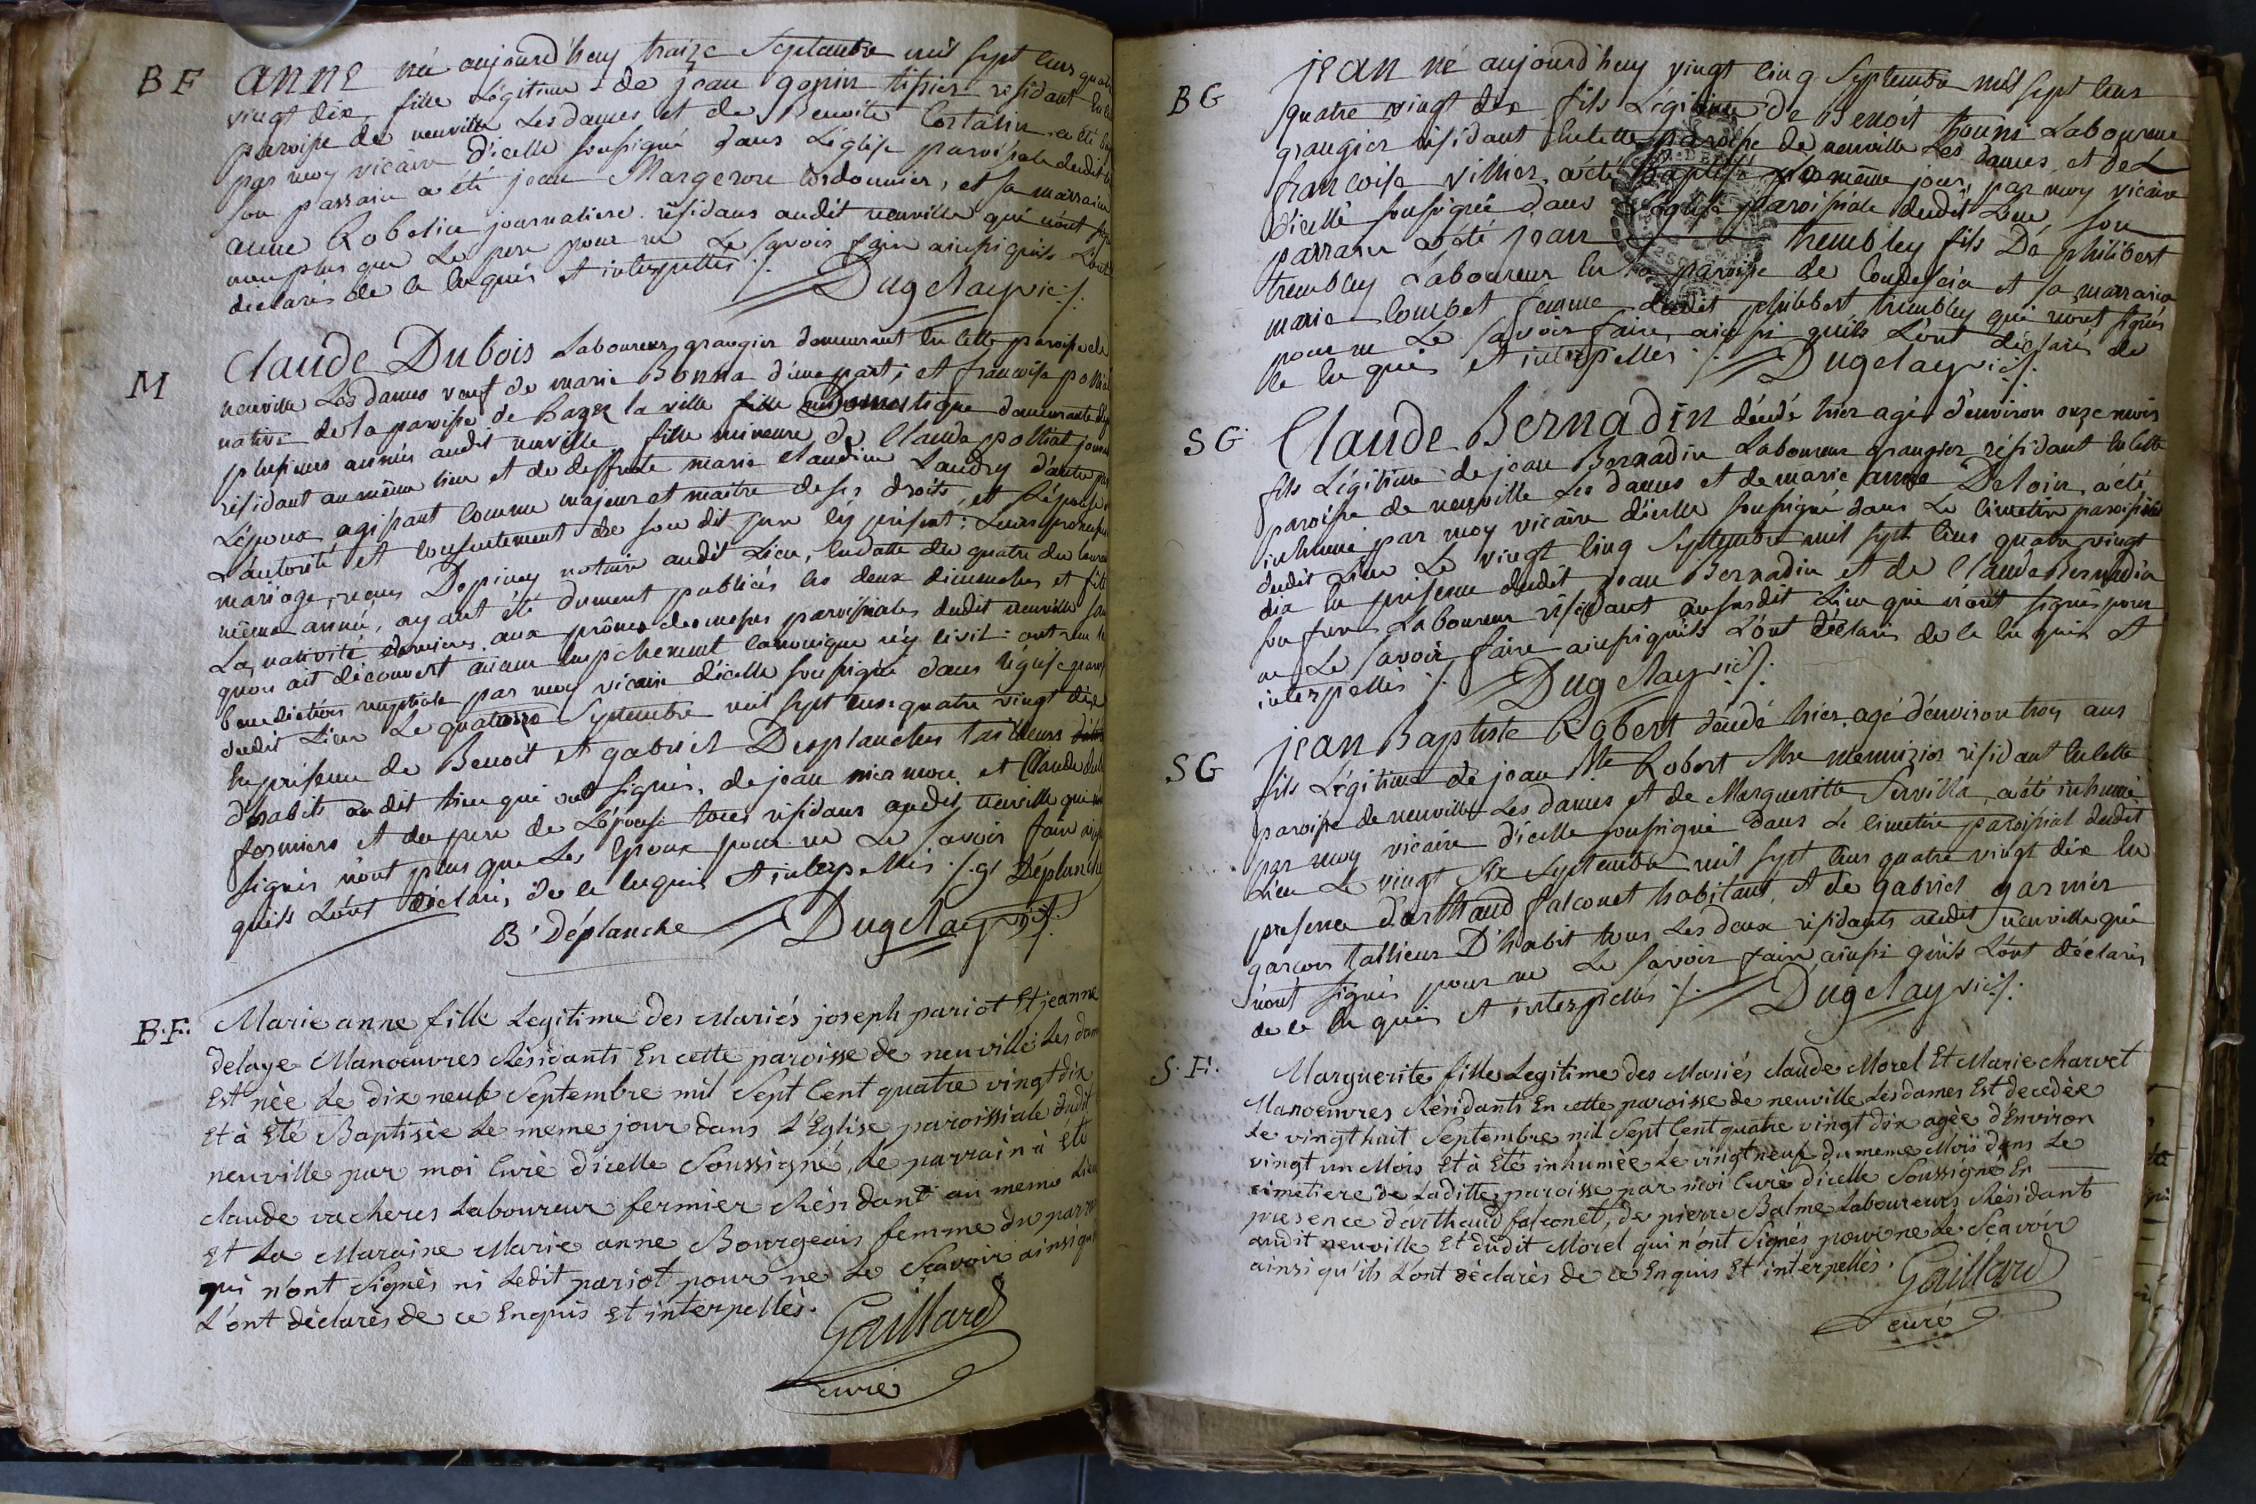 B F
ANNE née aujourd'huy traize Septembre mil sept cens quatre
vingt dix, fille Légitime de jean gonin tissier résidant en cette
paroisse de neuville Les dames et de Benoite Costalin a été
par moy vicaire d'icelle soussigné dans L'église paroissiale dudit
son parrain a été jean Margeron Cordonnier, et sa marraine
anne Robelin journaliere résidans audit neuville qui n'ont
non plus que Le pere pour ne Le savoir faire ainsi qu'ils L'ont
declarés de ce enquis et interpellés ./. Dugelay vic ./.
M
Claude Dubois Laboureur grangier demeurant en cette paroisse de
neuville Les dames veuf de marie Bonna d'une part, et françoise polliat
native de la paroisse de Bagé la ville Domestique demeurante depuis
plusieurs années audit neuville fille mineure de Claude polliat
résidant au même lieu et de deffunte marie Claudine Landry d'autre part
L'époux agissant comme majeur et maitre de ses droits, et L'épouse
L'autorité et consentement de son dit pere icy présent : Leurs promesses
mariage, reçues Depiney notaire audit Lieu, en datte du quatre du courant
même année, ayant été dument publiées les deux dimenches et fête
La nativité dernieres, aux prônes des messes paroissiales dudit neuville sans
qu'on ait découvert aucun empechement canonique n'y civil : ont reçu la
benediction nuptiale par moy vicaire d'icelle soussigné dans l'église
dudit Lieu Le quatorze Septembre mil sept cens quatre vingt dix
en présence de Benoit et gabriel Desplanches tailleurs
d'habits audit lieu qui ont signés, de jean miermon et Claude
fermiers et du pere de L'épouse tous résidans audit neuville qui
signés n'ont plus que Les époux pour ne Le savoir faire ainsi
qu'ils L'ont déclaré, de ce enquis et interpellés ./. g Déplanche
B Déplanche Dugelay vic ./.
B.F:
Marie anne fille Legitime des Mariés joseph pariot Et jeanne
delaye Manoeuvres Résidants En cette paroisse de neuville Les dames
Est née Le dix neuf Septembre mil Sept Cent quatre vingt dix
Et à Eté Baptisée Le meme jour dans L'Eglise paroissiale dudit
neuville par moi Curé d'icelle Soussigné, Le parrain à Eté
claude vacheres Laboureur fermier Résidant au meme Lieu
Et La Maraine Marie anne Bourgeois femme du parrain
qui n'ont Signés ni Ledit pariot pour ne Le Scavoir ainsi qu'ils
L'ont déclarés de ce Enquis Et interpellés.
Gaillard
curé
B G
JEAN né aujourd'huy vingt cinq Septembre mil sept cens
quatre vingt dix fils Légitime de Benoit Laboureur
grangier résidant en cette paroisse de neuville Les dames, et de
françoise villier, a été Baptisé Le même jour par moy vicaire
d'icelle soussigné dans L'église paroissiale dudit Lieu, son
parrain a été jean trembley fils De philibert
trembley Laboureur en la paroisse de Condeissia et sa marraine
marie Combet femme dudit philibert trembley qui n'ont signés
pour ne Le savoir faire, ainsi qu'ils L'ont déclarés de
ce enquis et interpellés ./. Dugelay vic ./.
S G
Claude Bernadin décédé hier agé d'environ onze mois
fils Légitime de jean Bernadin Laboureur grangier résidant en cette
paroisse de neuville Les dames et de marie anne Deloin, a été
inhumé par moy vicaire d'icelle soussigné dans Le cimetière paroissial
dudit Lieu Le vingt cinq Septembre mil sept cens quatre vingt
dix en présence dudit jean Bernadin et de Claude Bernadin
son frere Laboureur résidant au susdit Lieu qui n'ont signés pour
ne Le savoir faire ainsi qu'ils L'ont déclarés de ce enquis et
interpellés ./. Dugelay vic ./.
S G
Jean Baptiste Robert décédé hier, agé d'environ trois ans
fils Légitime de jean Bte Robert Mre menuizier résidant en cette
paroisse de neuville Les dames et de Margueritte Servilla, a été inhumé
par moy vicaire d'icelle soussigné dans Le cimetière paroissial dudit
Lieu Le vingt six Septembre mil sept cens quatre vingt dix en
presence d'arthaud falconet habitant, et de gabriel garnier
garçon tallieur D'habit tous Les deux résidants audit neuville qui
n'ont signés pour ne Le savoir faire ainsi qu'ils L'ont déclarés
de ce enquis et interpellés ./. Dugelay vic ./.
S.F:
Marguerite fille Legitime des Mariés claude Morel Et Marie charvet
Manoeuvres Résidants En cette paroisse de neuville Les dames Est decedée
Le vingt huit Septembre mil Sept Cent quatre vingt dix agée d'Environ
vingt un Mois Et à Eté inhumée Le vingt neuf du meme Mois dans Le
cimetiere de Laditte paroisse par moi Curé d'icelle Soussigné En
presence d'arthaud falconet, de pierre Balme Laboureurs Résidants
audit neuville Et dudit Morel qui n'ont Signés pour ne Le Scavoir
ainsi qu'ils L'ont déclarés de ce Enquis Et interpellés.
Gaillard
curé